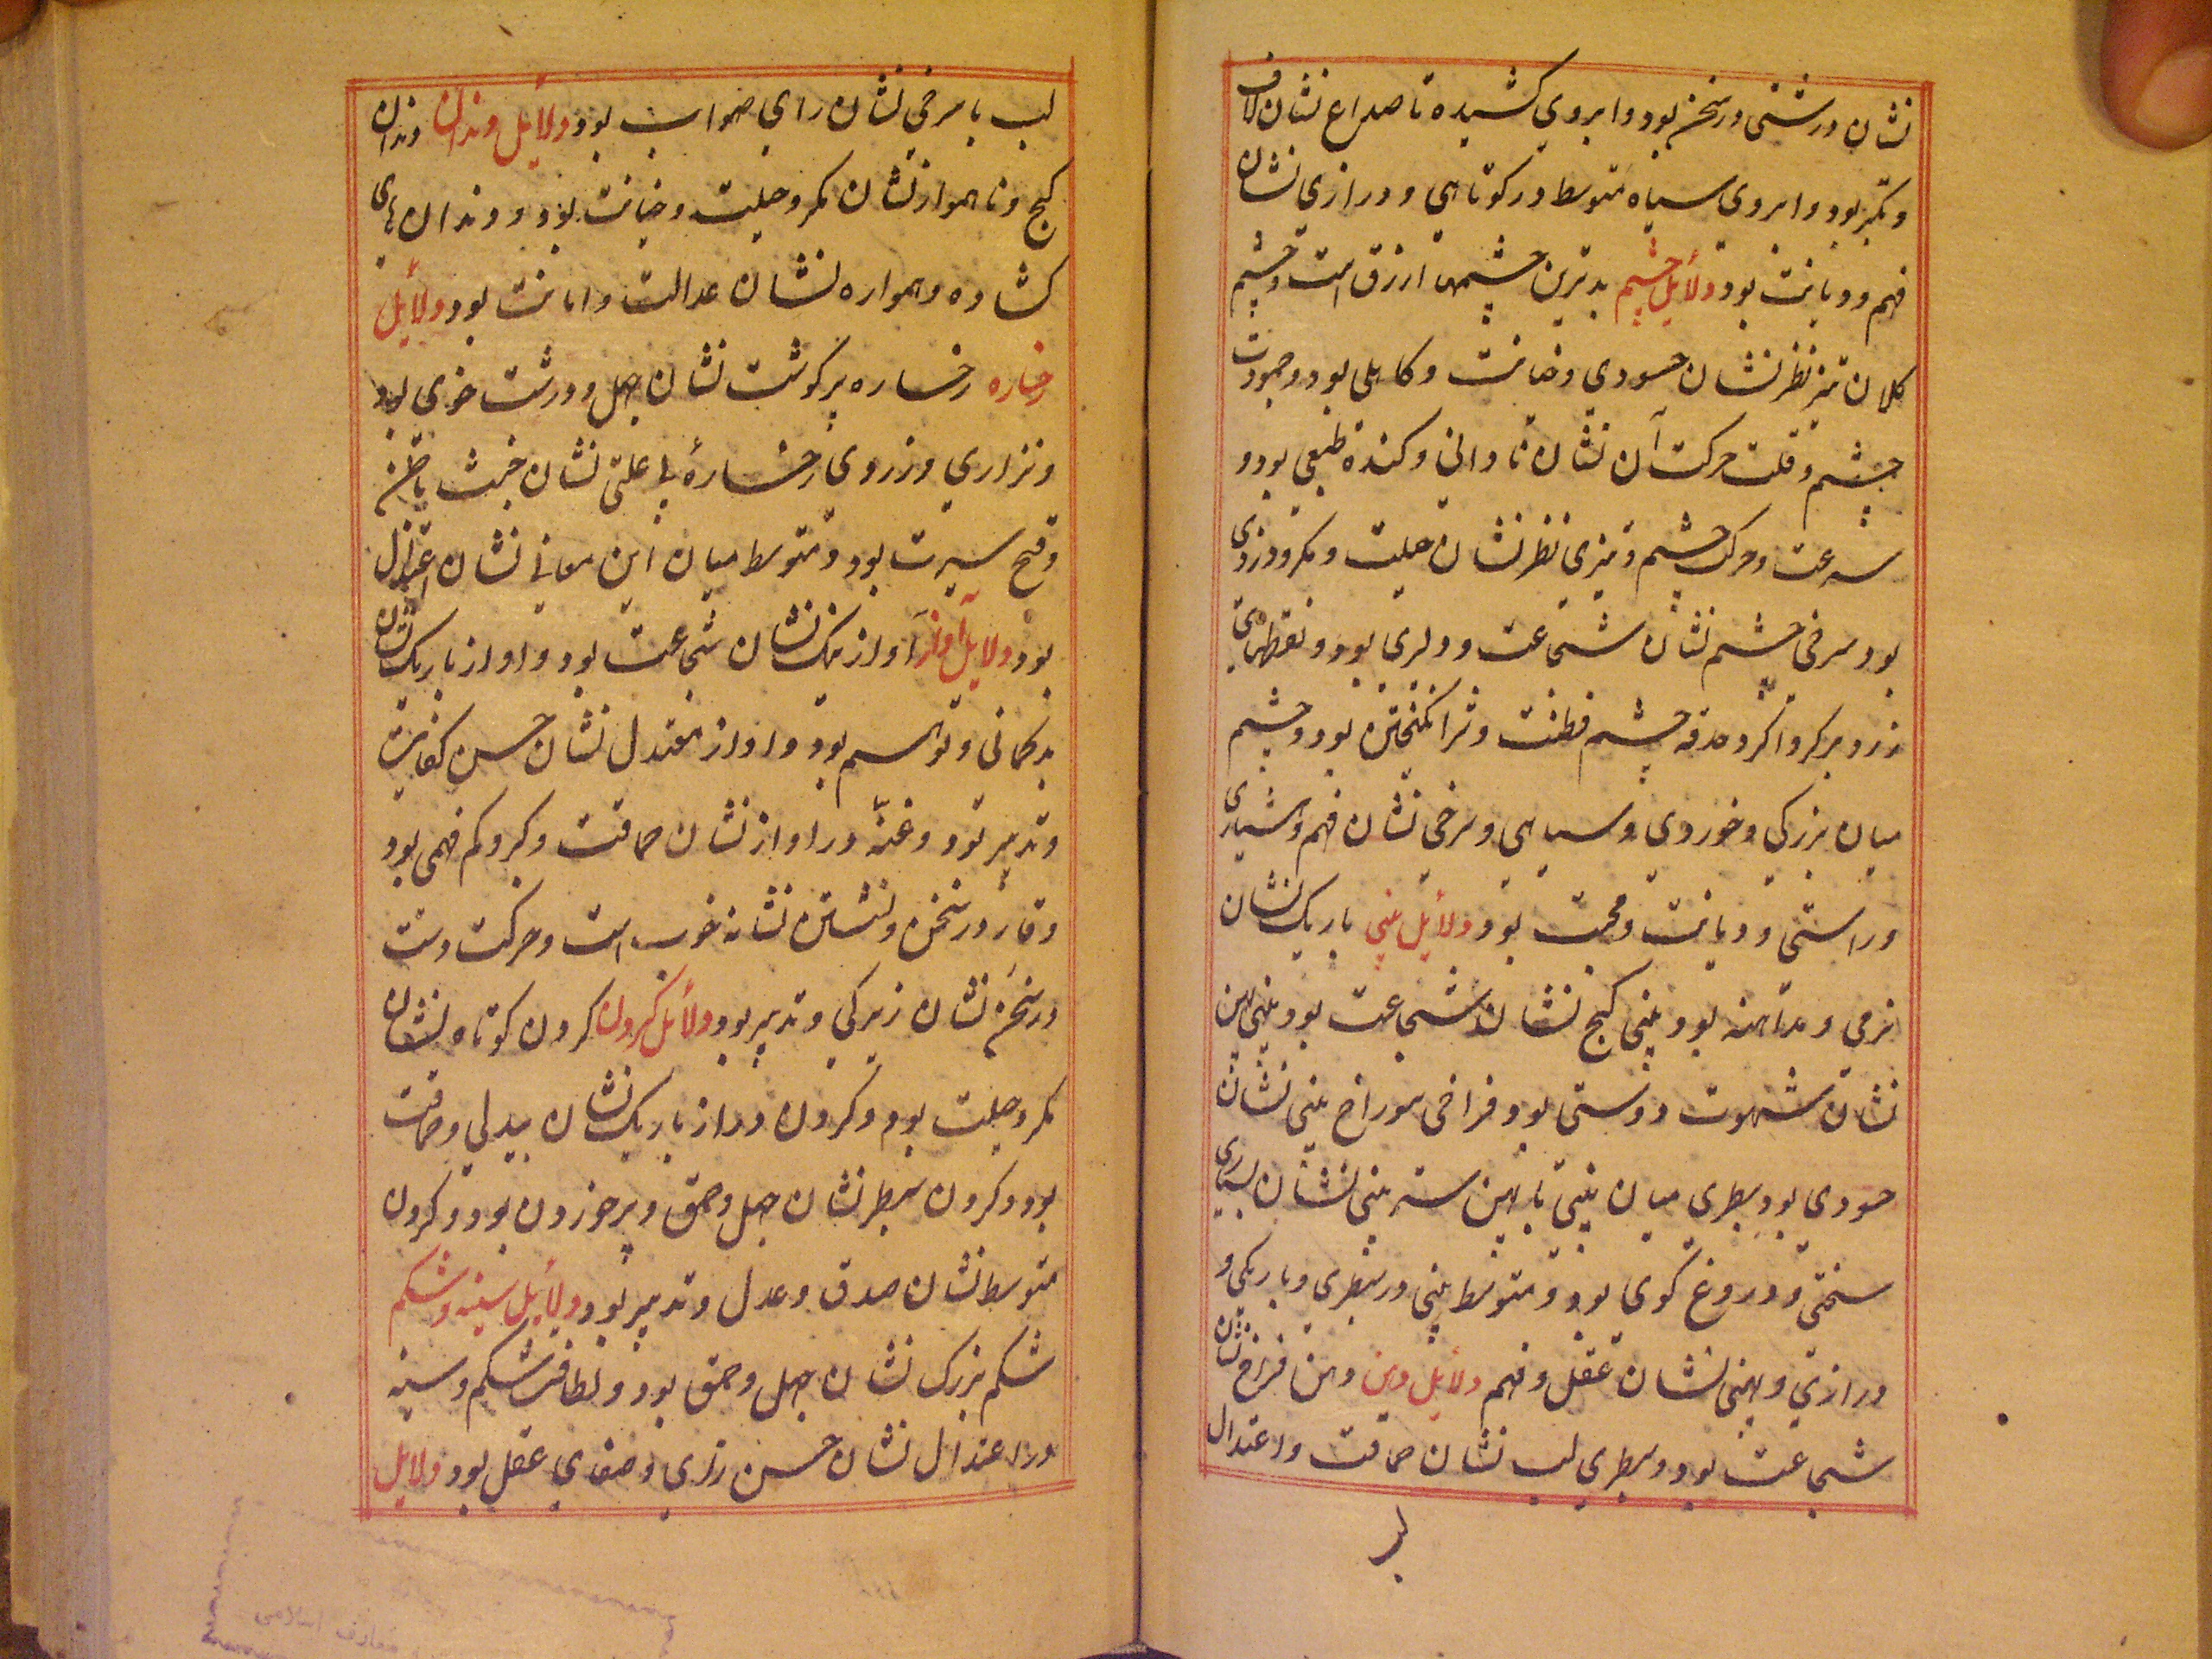 نشان درشتی در سخن بود و ابروی کشیده تا صداع نشان لاف
و تکبر بود و ابروی سیاه متوسط در کوتاهی و درازی نشان
فهم و دیانت بود دلایل چشم بدترین چشمها ازرق است و چشم
کلان تیز نظر نشان حسودی و خیانت و کاهلی بود و جمودت
چشم و قلت حرکت آن نشان نادانی و کنده طبعی بود و
سرعت و حرکت چشم و تیزی نظر نشان حیلت و مکر و دزدی
بود سرخی چشم نشان شجاعت و دلیری بود و نقطهای
زرد بر کرداکرد حدقه چشم فطنت و شر انکیختن بود و چشم
میان بزرکی و خوردی و سیاهی و سرخی نشان فهم و هشیاری
و راستی و دیانت و محبت بود دلایل بینی باریک نشان
نرمی و مداهنه بود بینی کج نشان شجاعت بود بینی پهن
نشان شهوت دوستی بود فراخی سوراخ بینی نشان
حسودی بود سطبری میان بینی با پهن سر بینی نشان بسیاری
سختی و دروغ کوی بود و متوسط بینی در سطبری و باریکی و
درازی و پهنی نشان عقل و فهم دلایل دهن دهن فراخ نشان
شجاعت بود و سطبری لب نشان حماقت و اعتدال
لب
لب با سرخی نشان رای صواب بود دلایل دندان دندان
کج و ناهموار نشان مکر و حیلت و خیانت بود و دندان های
کشاده و همواره نشان عدالت و امانت بود دلایل
رخساره رخساره پر کوشت نشان جهل و درشت خوی بود
و نزاری و زردی رخسارهٔ بی علتی نشان خبث باطن
و قبح سیرت بود و متوسط میان این معانی نشان اعتدال
بود دلایل آواز آواز نیک نشان شجاعت بود و اواز باریک نشان
بدکمانی و توهم بود و اواز معتدل نشان حسن کفایت
و تدبیر بود و غنّه در اواز نشان حماقت و کبر و کم فهمی بود
وقار در سخن و نشستن نشانه خوب است و حرکت دست
در سخن نشان زیرکی و تدبیر بود دلایل کردن کردن کوتاه نشان
مکر و حیلت بود و کردن دراز باریک نشان بیدلی و حماقت
بود و کردن سطبر نشان جهل و حمق و پر خوردن بود و کردن
متوسط نشان صدق و عدل و تدبیر بود دلایل سینه و شکم
شکم بزرک نشان جهل و حمق بود و لطافت شکم و سینه
در اعتدال نشان حسن رای و صفای عقل بود دلایل
معارف اسلامی